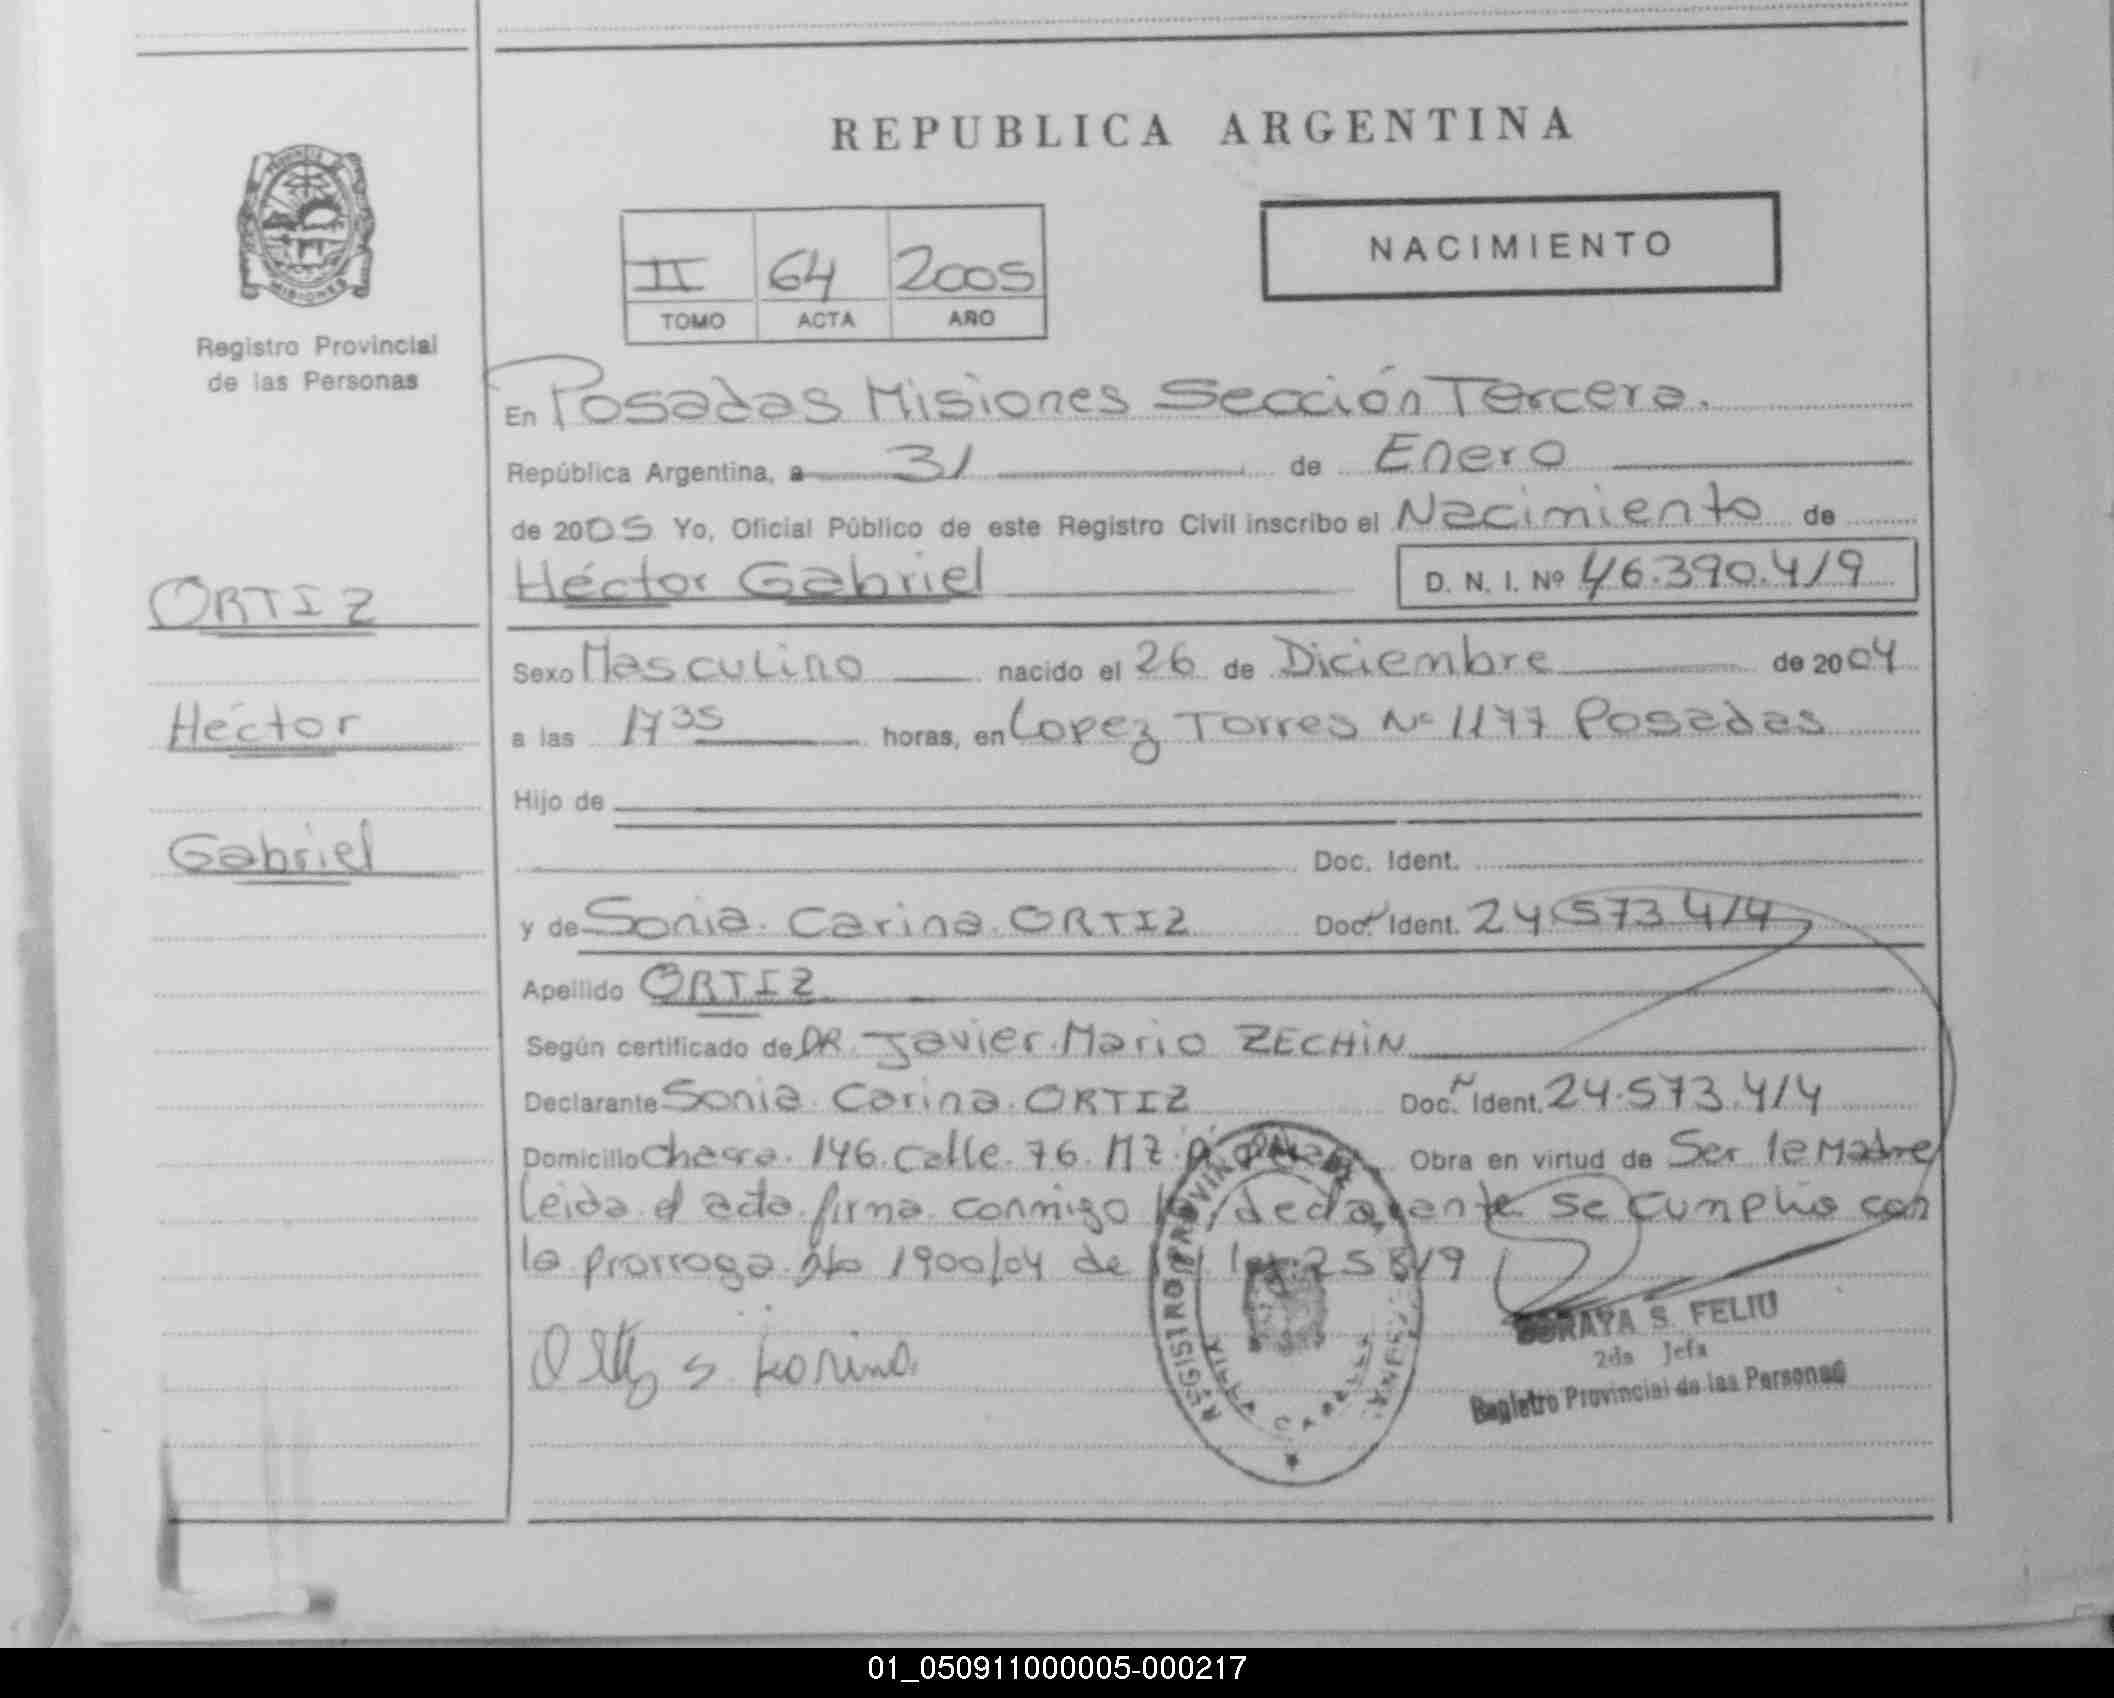 REPUBLICA ARGENTINA
PROVINCIA DE
MISIONES
Registro Provincial
de las Personas
II 64 2005
TOMO ACTA AÑO
NACIMIENTO
En Posadas Misiones Sección Tercera.
República Argentina, a 31 de Enero
de 2005 Yo, Oficial Público de este Registro Civil inscribo el Nacimiento de
Héctor Gabriel D. N. I. Nº 46.390.419
ORTIZ
Héctor
Gabriel
Sexo Masculino nacido el 26 de Diciembre de 2004
a las 17 35 horas, en Lopez Torres Nº 1177 Posadas
Hijo de
Doc. Ident.
y de Sonia Carina ORTIZ Doc. Ident. 24.573.414
Apellido ORTIZ
Según certificado de DR. Javier Mario ZECHIN
Declarante Sonia Carina ORTIZ Doc. Ident. 24.573.414
Domicilio Chacra 146 Calle 76 MZ Obra en virtud de Ser la Madre
Leida el acta firma conmigo la declarante se cumplio con
la prorroga 1900/04 de la ley 25819
S. Karina
REGISTRO PROVINCIAL DE LAS PERSONAS
SORAYA S. FELIU
2da Jefa
Registro Provincial de las Personas
01_050911000005-000217